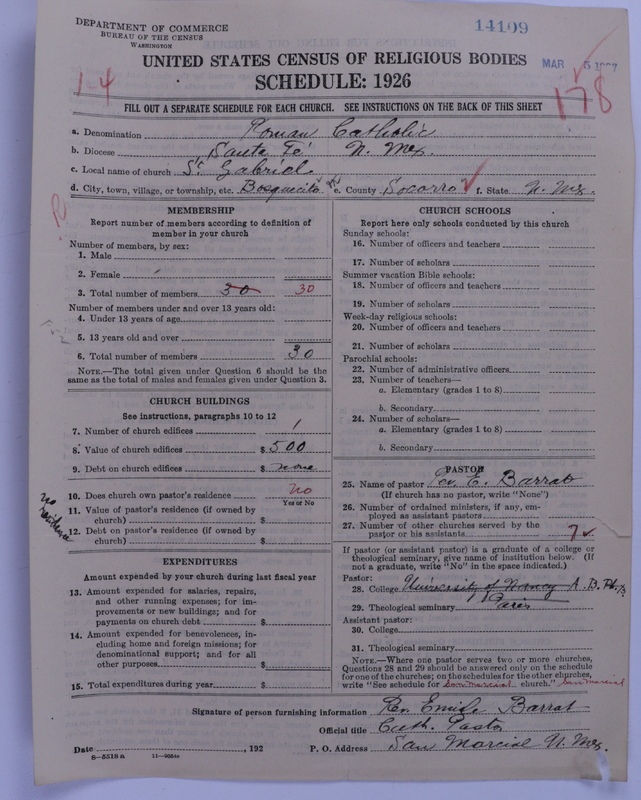 DEPARTMENT OF COMMERCE
BUREAU OF THE CENSUS
WASHINGTON
14109
UNITED STATES CENSUS OF RELIGIOUS BODIES
MAR 5 1927
SCHEDULE: 1926
1-4
178
FILL OUT A SEPARATE SCHEDULE FOR EACH CHURCH. SEE INSTRUCTIONS ON THE BACK OF THIS SHEET
a. Denomination Roman Catholic
b. Diocese Santa Fé N. Mex.
c. Local name of church St. Gabriel
d. City, town, village, or township, etc. Bosquecito e. County Socorro f. State N. Mex.
MEMBERSHIP
Report number of members according to definition of
member in your church
Number of members, by sex:
1. Male
2. Female
3. Total number of members 30 30
Number of members under and over 13 years old:
4. Under 13 years of age
5. 13 years old and over
6. Total number of members 30
NOTE.—The total given under Question 6 should be the
same as the total of males and females given under Question 3.
CHURCH BUILDINGS
See instructions, paragraphs 10 to 12
7. Number of church edifices 1
8. Value of church edifices $ 500
9. Debt on church edifices $ none
10. Does church own pastor's residence No
Yes or No
no residence
11. Value of pastor's residence (if owned by
church) $
12. Debt on pastor's residence (if owned by
church) $
EXPENDITURES
Amount expended by your church during last fiscal year
13. Amount expended for salaries, repairs,
and other running expenses; for im-
provements or new buildings; and for
payments on church debt $
14. Amount expended for benevolences, in-
cluding home and foreign missions; for
denominational support; and for all
other purposes $
15. Total expenditures during year $
CHURCH SCHOOLS
Report here only schools conducted by this church
Sunday schools:
16. Number of officers and teachers
17. Number of scholars
Summer vacation Bible schools:
18. Number of officers and teachers
19. Number of scholars
Week-day religious schools:
20. Number of officers and teachers
21. Number of scholars
Parochial schools:
22. Number of administrative officers
23. Number of teachers—
a. Elementary (grades 1 to 8)
b. Secondary
24. Number of scholars—
a. Elementary (grades 1 to 8)
b. Secondary
PASTOR
25. Name of pastor Rev. E. Barrat
(If church has no pastor, write "None")
26. Number of ordained ministers, if any, em-
ployed as assistant pastors
27. Number of other churches served by the
pastor or his assistants 7
If pastor (or assistant pastor) is a graduate of a college or
theological seminary, give name of institution below. (If
not a graduate, write "No" in the space indicated.)
Pastor:
28. College University of Nancy A. B. Ph. B
29. Theological seminary Paris
Assistant pastor:
30. College
31. Theological seminary
NOTE.—Where one pastor serves two or more churches,
Questions 28 and 29 should be answered only on the schedule
for one of the churches; on the schedules for the other churches,
write "See schedule for San Marcial church." San Marcial
Signature of person furnishing information Rev. Emile Barrat
Official title Cath. Pastor
Date , 192 P. O. Address San Marcial N. Mex.
8-5518 a